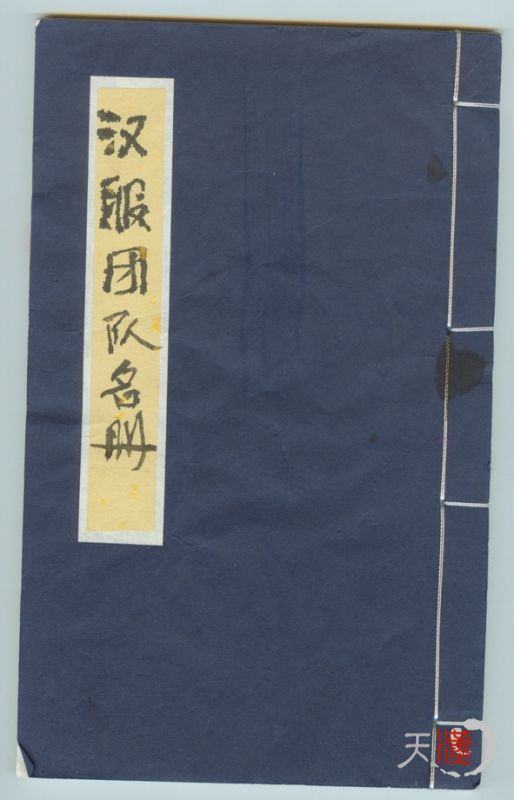 汉服团队名册
天漢